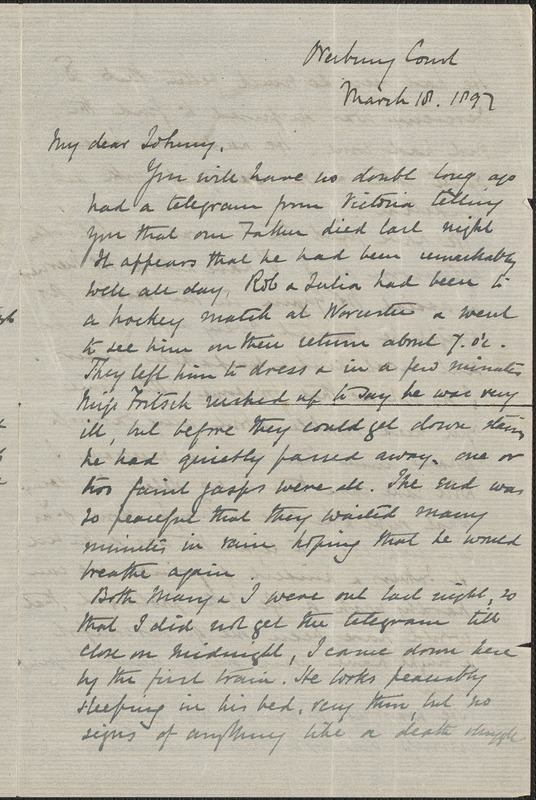 Court
March 18. 1897
My dear Johnny,
You will have no doubt long ago
had a telegram from Victoria telling
you that our Father died last night
It appears that he had been remarkably
well all day, Rob & Julia had been to
a hockey match at Worcester & went
to see him on their return about 7. o'c.
They left him to dress & in a few minutes
Miss Fritsch rushed up to say he was very
ill, but before they could get down stairs
he had quietly passed away. one or
two faint gasps were all. The end was
so peaceful that they waited many
minutes in vain hoping that he would
breathe again.
Both Mary & I were out last night, so
that I did not get the telegram till
close on midnight, I came down here
by the first train. He looks peaceably
sleeping in his bed, very thin, but no
signs of anything like a death struggle